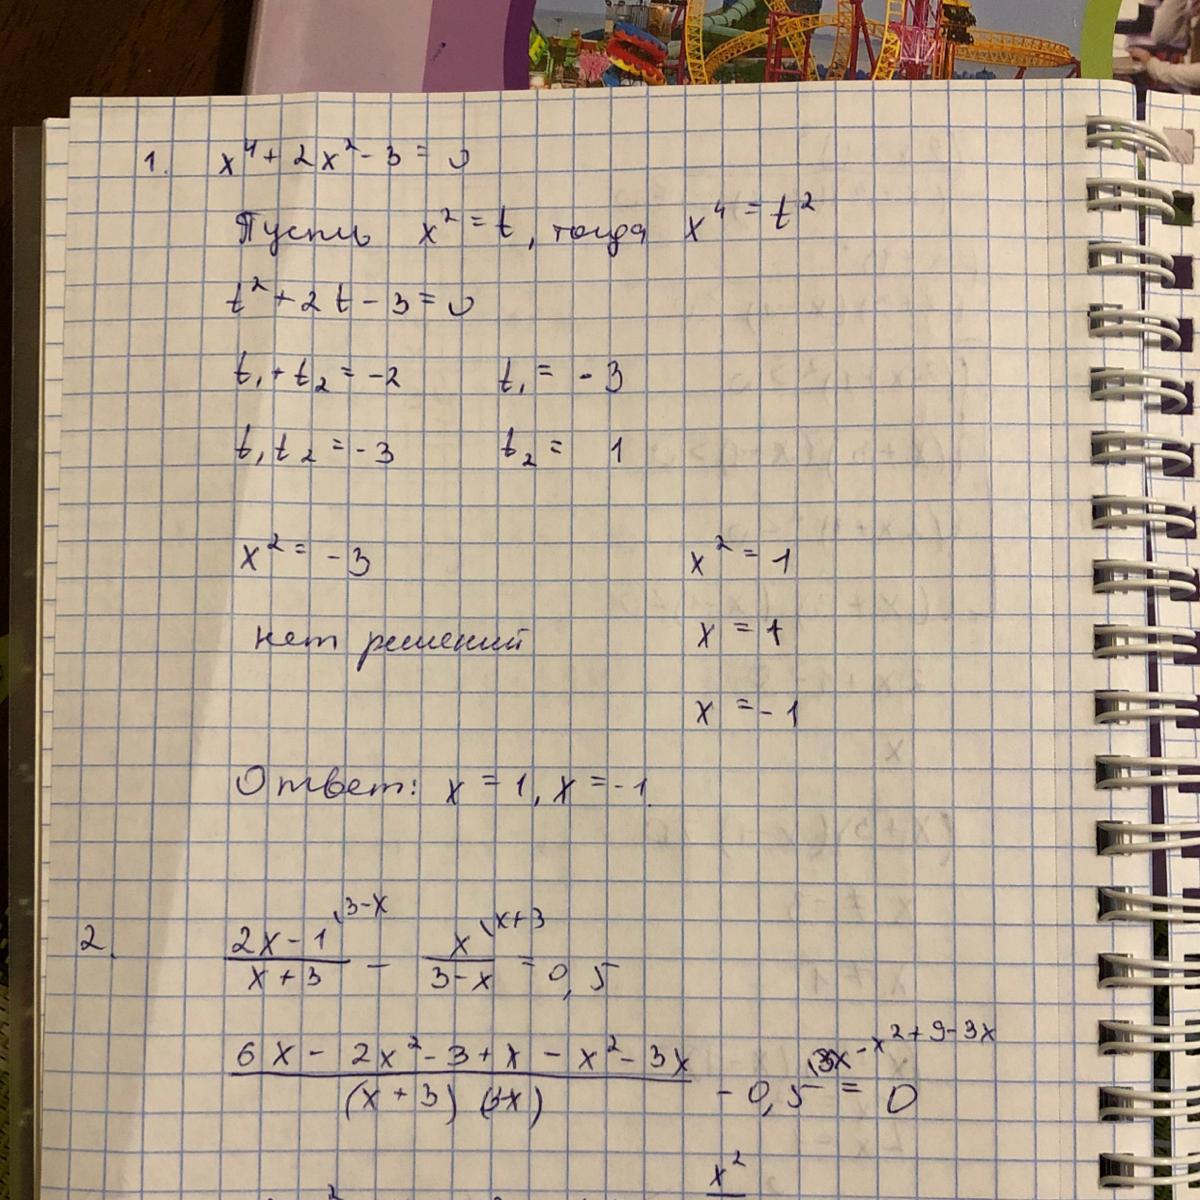 1. x⁴ + 2x² - 3 = 0
Пусть x² = t, тогда x⁴ = t²
t² + 2t - 3 = 0
t₁ + t₂ = -2 t₁ = -3
t₁t₂ = -3 t₂ = 1
x² = -3 x² = 1
нет решений x = 1
x = -1
Ответ: x = 1, x = -1.
2. (2x - 1)/(x + 3) \3-x - x/(3-x) \x+3 = 0,5
(6x - 2x² - 3 + x - x² - 3x)/((x + 3)(3-x)) - 0,5 \3x - x² + 9 - 3x = 0
x²